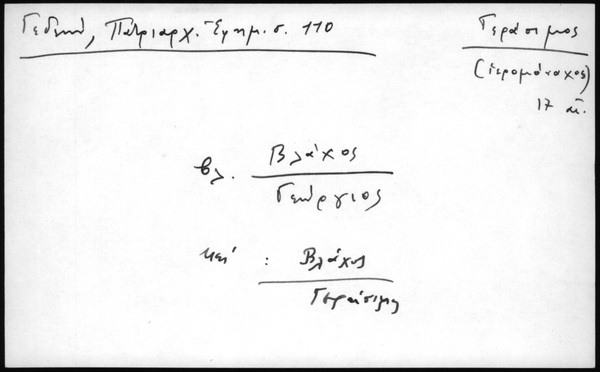 Γεδεών, Πατριαρχ. Ἐφημ. σ. 110
Γεράσιμος
(ἱερομόναχος)
17 αἰ.
βλ. Βλάχος
Γεώργιος
καί : Βλάχος
Γεράσιμος